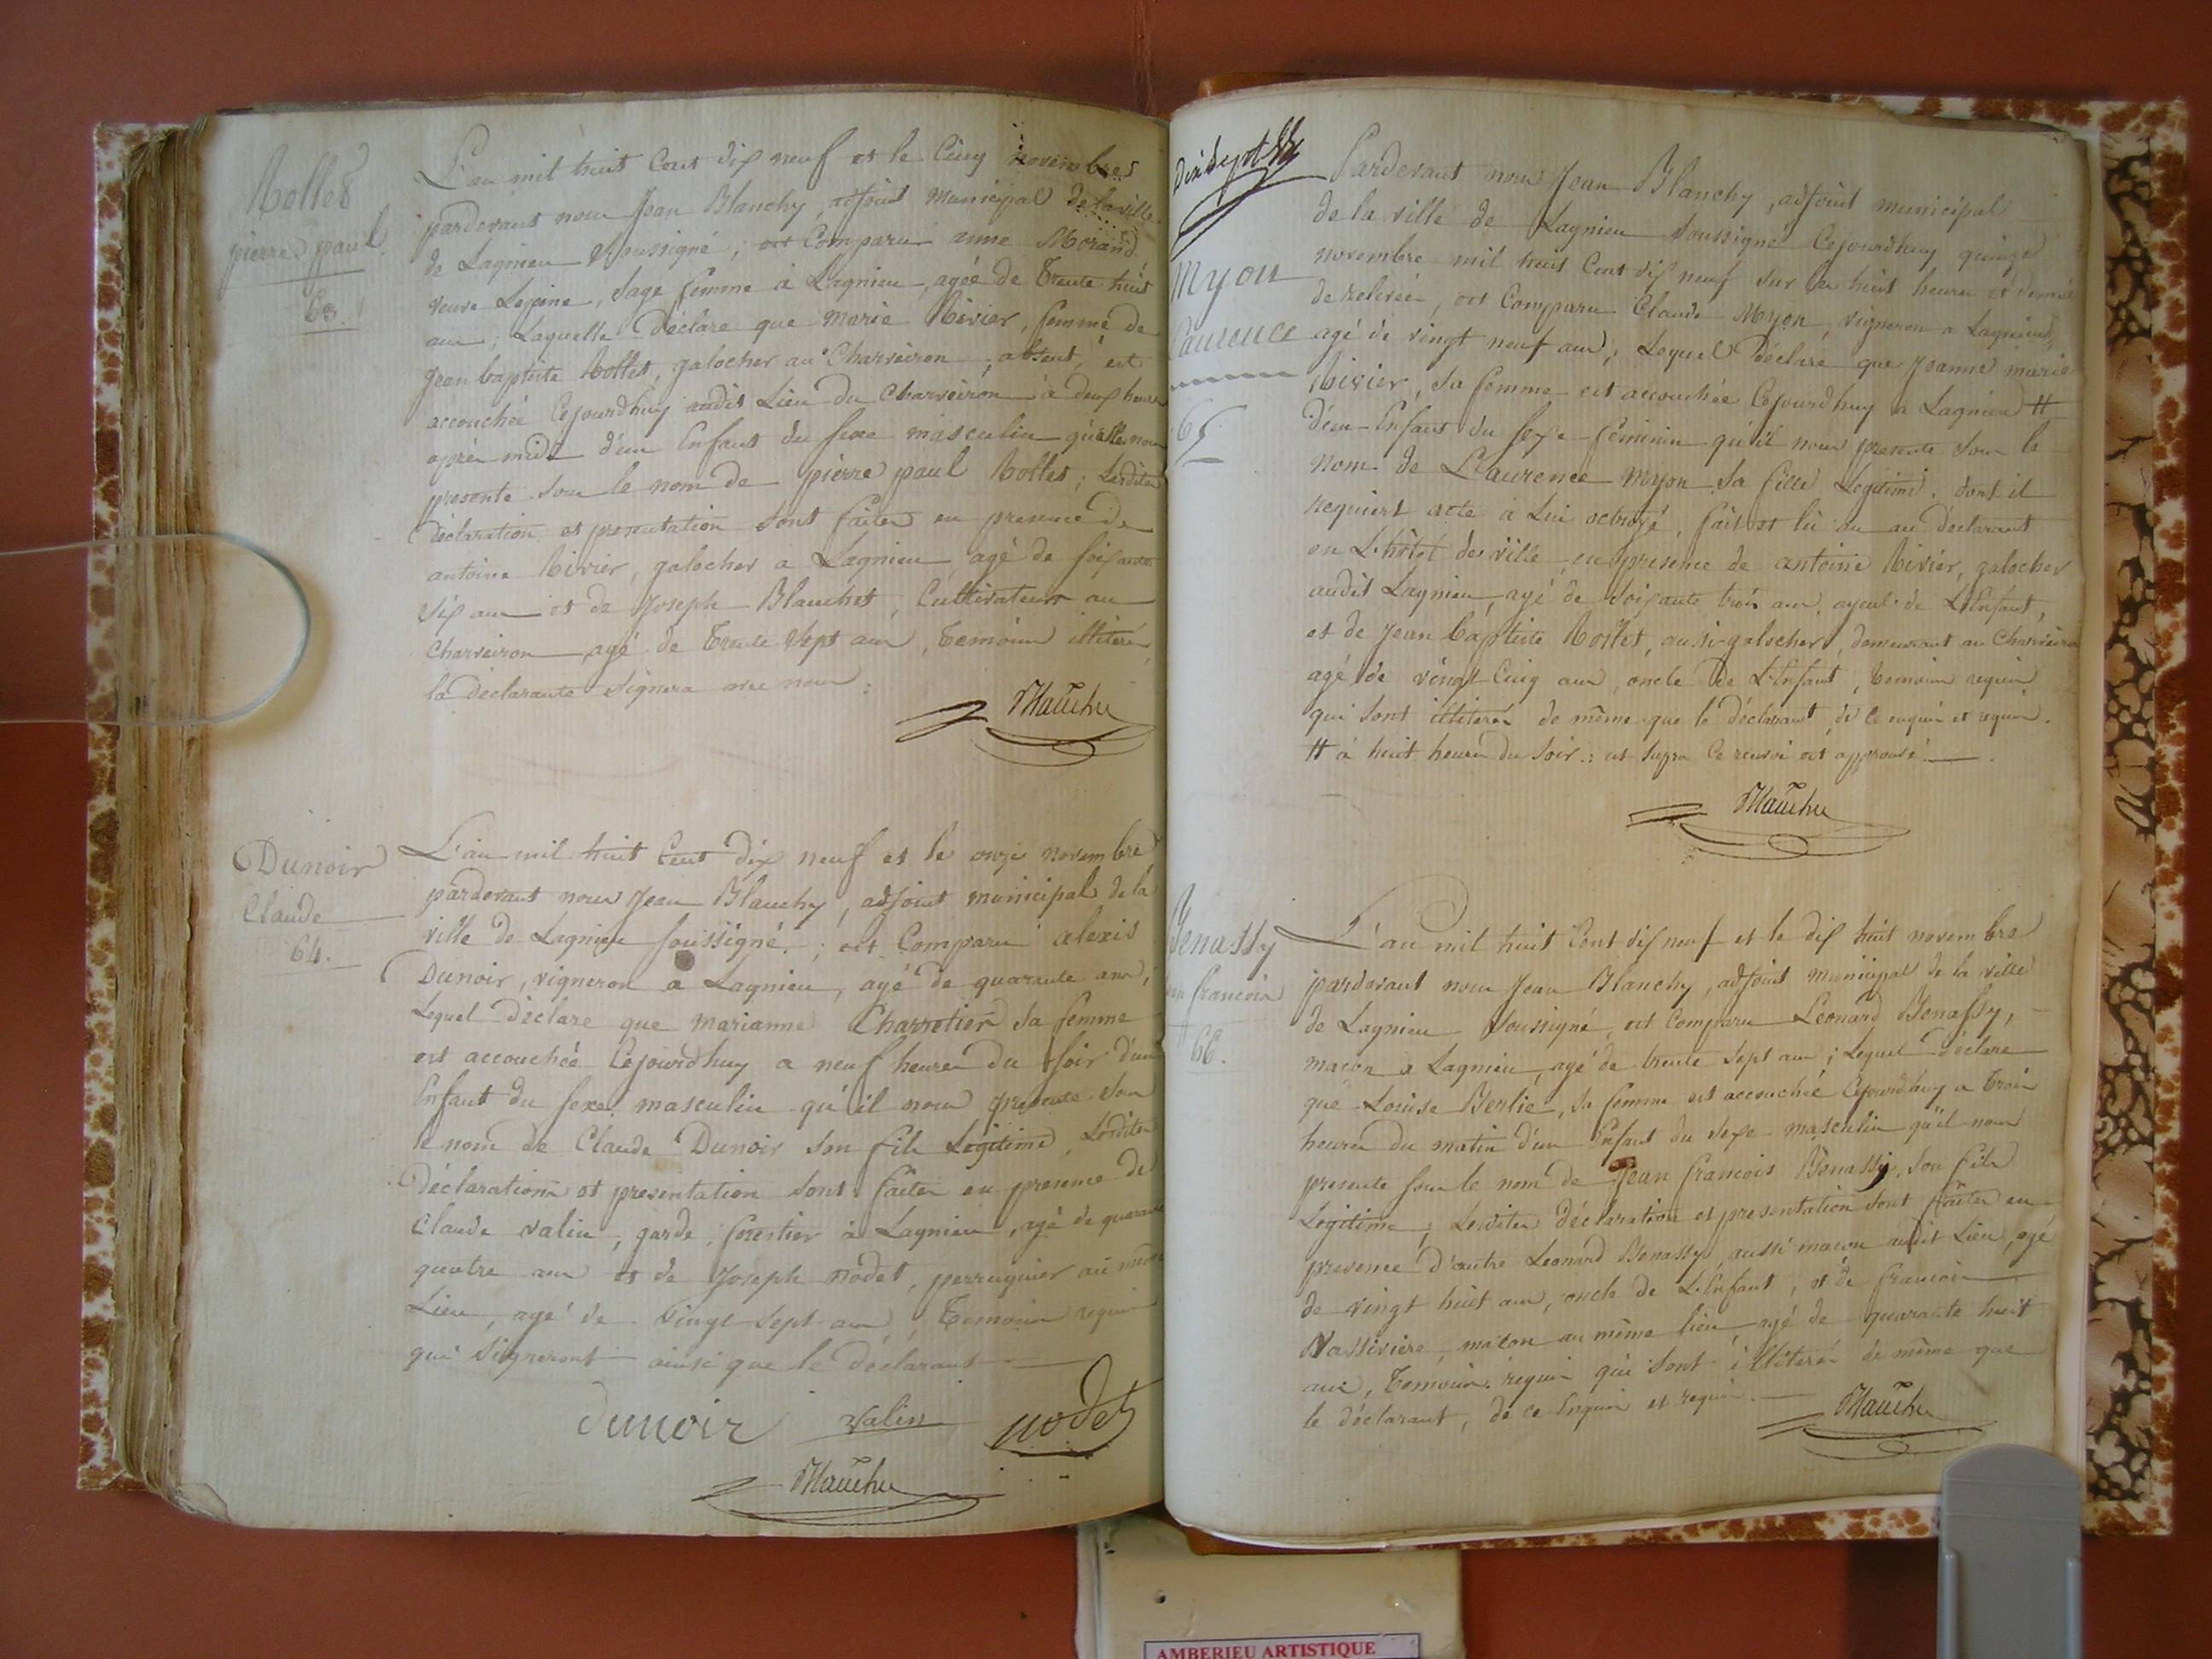 Rollet
pierre paul
63.
L'an mil huit Cent dix neuf et le Cinq novembre
pardevant nous Jean Blanchy, adjoint Municipal de la ville
de Lagnieu soussigné, est Comparu anne Morand
veuve Lepine, sage femme à Lagnieu, agée de Trente huit
ans; Laquelle déclare que Marie Rivier, femme de
Jean baptiste Rollet, galocher au Charveiron, absent, est
accouchée Cejourdhuy audit Lieu du Charveiron à deux heures
après midi d'un Enfant du sexe masculin qu'elle nous
presente sous le nom de pierre paul Rollet; Lesdites
déclaration et presentation sont faites en presence de
antoine Rivier, galocher a Lagnieu, agé de soixante
dix ans et de Joseph Blanchet, Cultivateur au
Charveiron agé de Trente Sept ans, Temoins illiterés
la declarante Signera avec nous:
Blanchy
Dunoir
Claude
64.
L'an mil huit Cent dix neuf et le onze novembre
pardevant nous Jean Blanchy, adjoint municipal de la
ville de Lagnieu soussigné; est Comparu alexis
Dunoir, vigneron a Lagnieu, agé de quarante ans;
Lequel déclare que marianne Charrotier sa femme
est accouchée Cejourdhuy a neuf heures du soir d'un
Enfant du sexe masculin qu'il nous presente sous
le nom de Claude Dunoir son fils Legitime, Lesdites
déclarations et presentation sont faites en presence de
Claude Valin, garde forestier à Lagnieu, agé de quarante
quatre ans et de Joseph nodet, perruquier au même
Lieu, agé de vingt sept ans, Temoins requis
qui Signeront ainsi que le déclarant
dunoir Valin nodet
Blanchy
Dix Sept
Myon
Laurence
65
Pardevant nous Jean Blanchy, adjoint municipal
de la ville de Lagnieu soussigné Cejourdhuy quinze
novembre mil huit Cent dix neuf sur les huit heures et demie
de relevée, est Comparu Claude Myon, vigneron a Lagnieu,
agé de vingt neuf ans; Lequel déclare que Jeanne marie
Rivier, sa femme est accouchée Cejourdhuy à Lagnieu #
d'un Enfant du sexe feminin qu'il nous presente sous le
nom de Laurence Myon sa fille Legitime. dont il
requiert acte à Lui octroyé, fait et lû au déclarant
en L'hôtel de ville en presence de antoine Rivier, galocher
audit Lagnieu, agé de soixante trois ans, ayeul de L'Enfant,
et de Jean Baptiste Rollet, aussi galocher, demeurant au Charveiron
agé de vingt Cinq ans, oncle de L'Enfant, temoins requis
qui sont illiterés de même que le déclarant de ce enquis et requis.
# à huit heures du Soir: ut supra Ce renvoi est approuvé
Blanchy
Benassy
francois
66.
L'an mil huit Cent dix neuf et le dix huit novembre
pardevant nous Jean Blanchy, adjoint municipal de la ville
de Lagnieu soussigné, est Comparu Leonard Benassy,
macon a Lagnieu, agé de trente sept ans; Lequel déclare
que Louise Berlie, sa femme est accouchée Cejourdhuy a Trois
heures du matin d'un Enfant du sexe masculin qu'il nous
presente sous le nom de Jean francois Benassy, son fils
Legitime; Lesdites déclaration et presentation sont faites en
presence d'autre Leonard Benassy, aussi macon audit Lieu, agé
de vingt huit ans, oncle de L'Enfant, et de francois
Vassiviere, macon au même lieu, agé de quarante huit
ans, Temoins requis qui sont illiterés de même que
le déclarant, de ce Enquis et requis.
Blanchy
AMBERIEU ARTISTIQUE